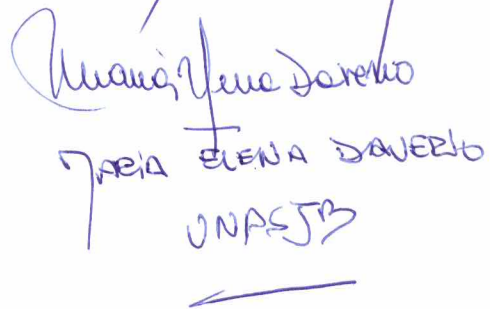 María Elena Daverio
MARÍA ELENA DAVERIO
UNPSJB